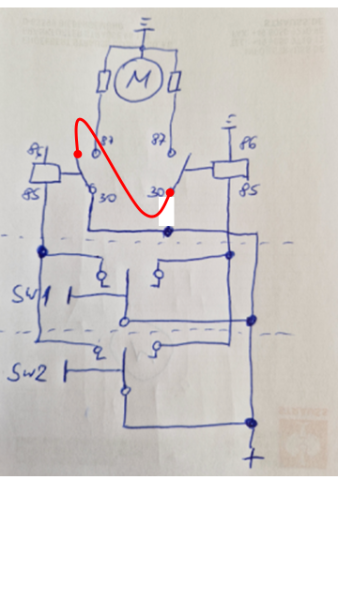 M
87 87
86 86
85 30 30 85
SW1
SW2
+